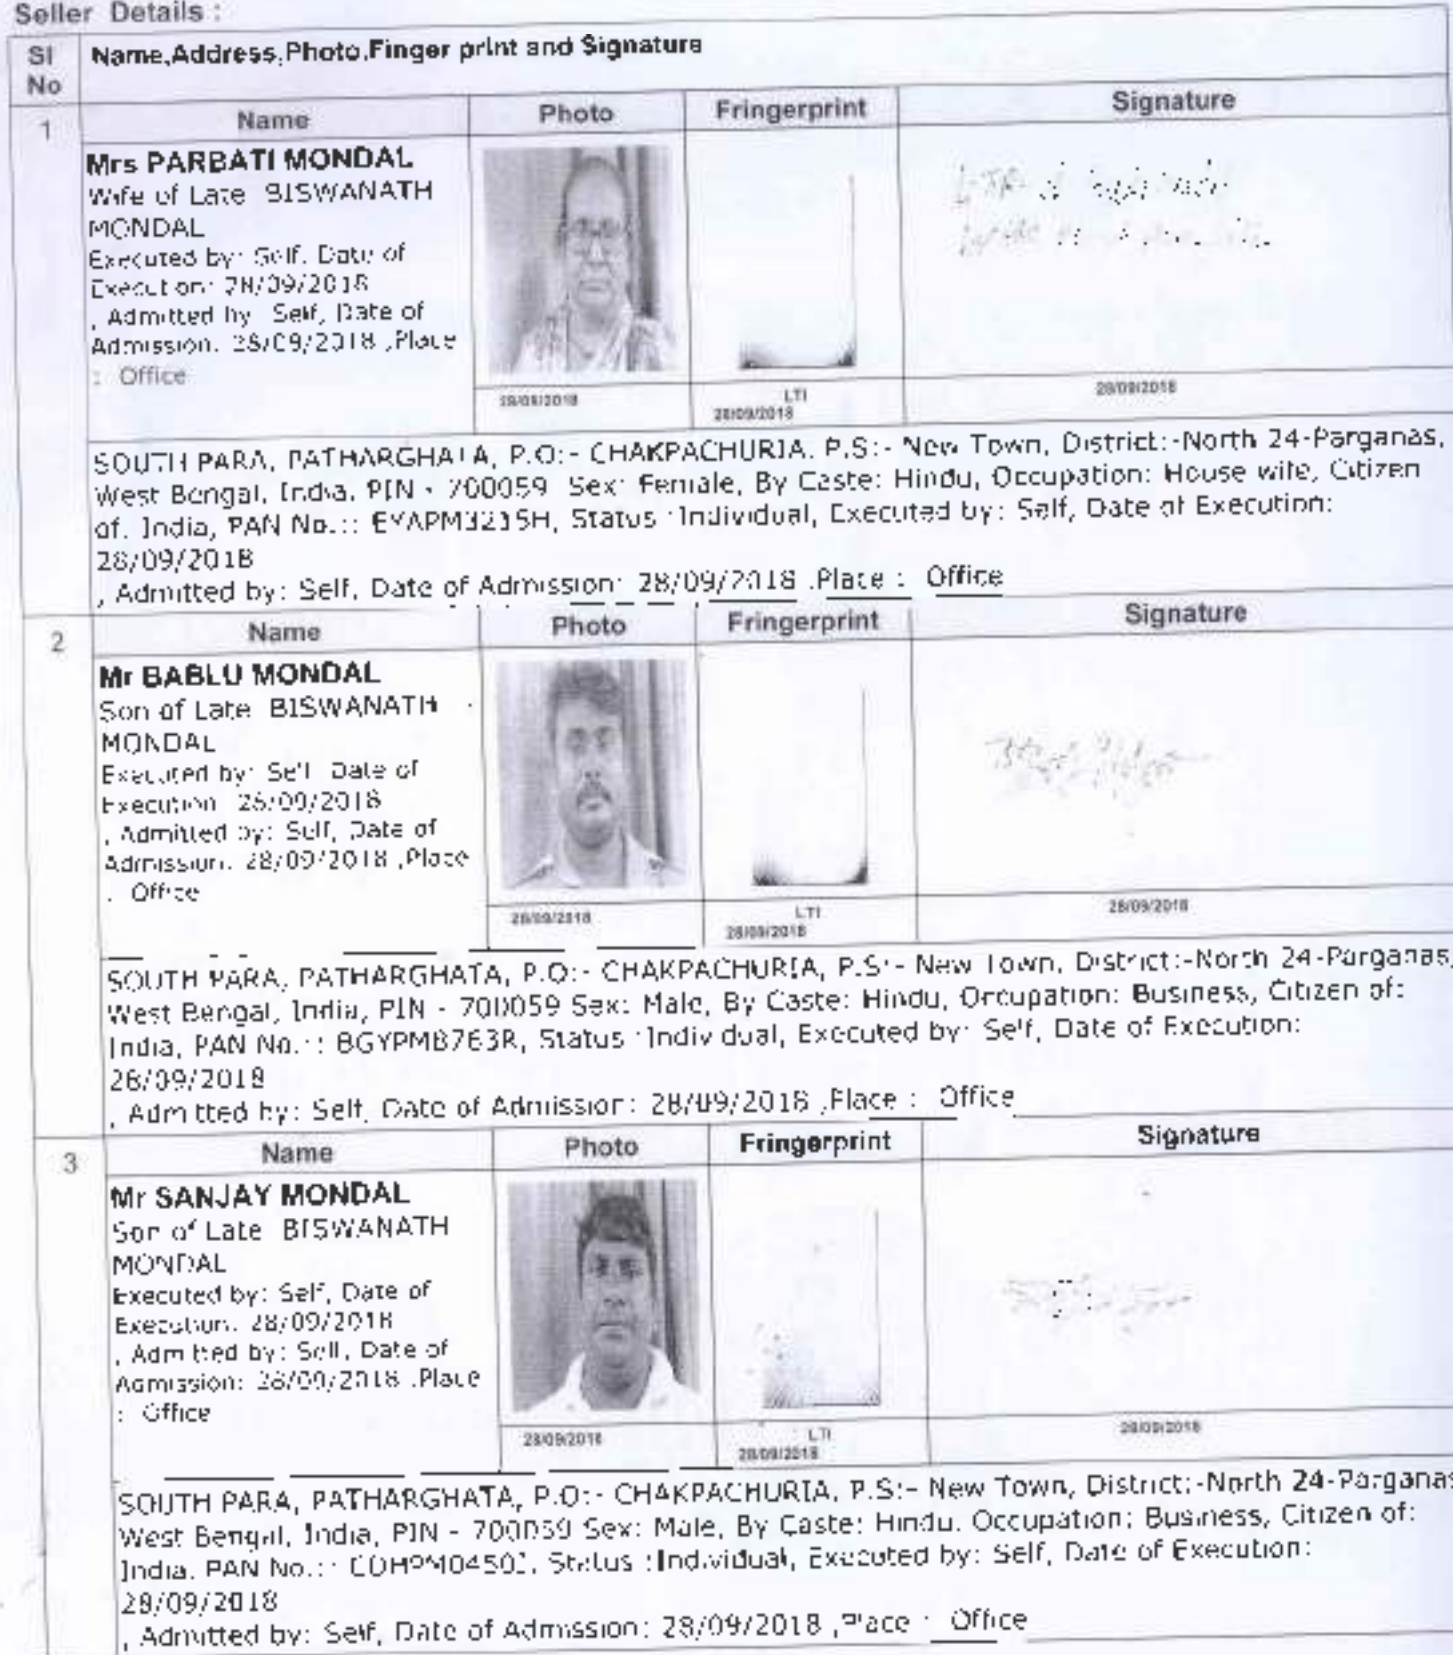 Seller Details :
SI No
Name,Address,Photo,Finger print and Signature
1
Name
Photo
Fringerprint
Signature
Mrs PARBATI MONDAL
Wife of Late BISWANATH
MONDAL
Executed by: Self, Date of
Execution: 28/09/2018
, Admitted by: Self, Date of
Admission: 28/09/2018 ,Place
: Office
28/09/2018
LTI
28/09/2018
28/09/2018
SOUTH PARA, PATHARGHATA, P.O:- CHAKPACHURIA, P.S:- New Town, District:-North 24-Parganas,
West Bengal, India, PIN - 700059 Sex: Female, By Caste: Hindu, Occupation: House wife, Citizen
of: India, PAN No.::
Status :Individual, Executed by: Self, Date of Execution:
28/09/2018
, Admitted by: Self, Date of Admission: 28/09/2018 ,Place : Office
2
Name
Photo
Fringerprint
Signature
Mr BABLU MONDAL
Son of Late BISWANATH
MONDAL
Executed by: Self, Date of
Execution: 28/09/2018
, Admitted by: Self, Date of
Admission: 28/09/2018 ,Place
: Office
28/09/2018
LTI
28/09/2018
28/09/2018
SOUTH PARA, PATHARGHATA, P.O:- CHAKPACHURIA, P.S:- New Town, District:-North 24-Parganas,
West Bengal, India, PIN - 700059 Sex: Male, By Caste: Hindu, Occupation: Business, Citizen of:
India, PAN No.::
Status :Individual, Executed by: Self, Date of Execution:
28/09/2018
, Admitted by: Self, Date of Admission: 28/09/2018 ,Place : Office
3
Name
Photo
Fringerprint
Signature
Mr SANJAY MONDAL
Son of Late BISWANATH
MONDAL
Executed by: Self, Date of
Execution: 28/09/2018
, Admitted by: Self, Date of
Admission: 28/09/2018 ,Place
: Office
28/09/2018
LTI
28/09/2018
28/09/2018
SOUTH PARA, PATHARGHATA, P.O:- CHAKPACHURIA, P.S:- New Town, District:-North 24-Parganas
West Bengal, India, PIN - 700059 Sex: Male, By Caste: Hindu, Occupation: Business, Citizen of:
India, PAN No.::
Status :Individual, Executed by: Self, Date of Execution:
28/09/2018
, Admitted by: Self, Date of Admission: 28/09/2018 ,Place : Office